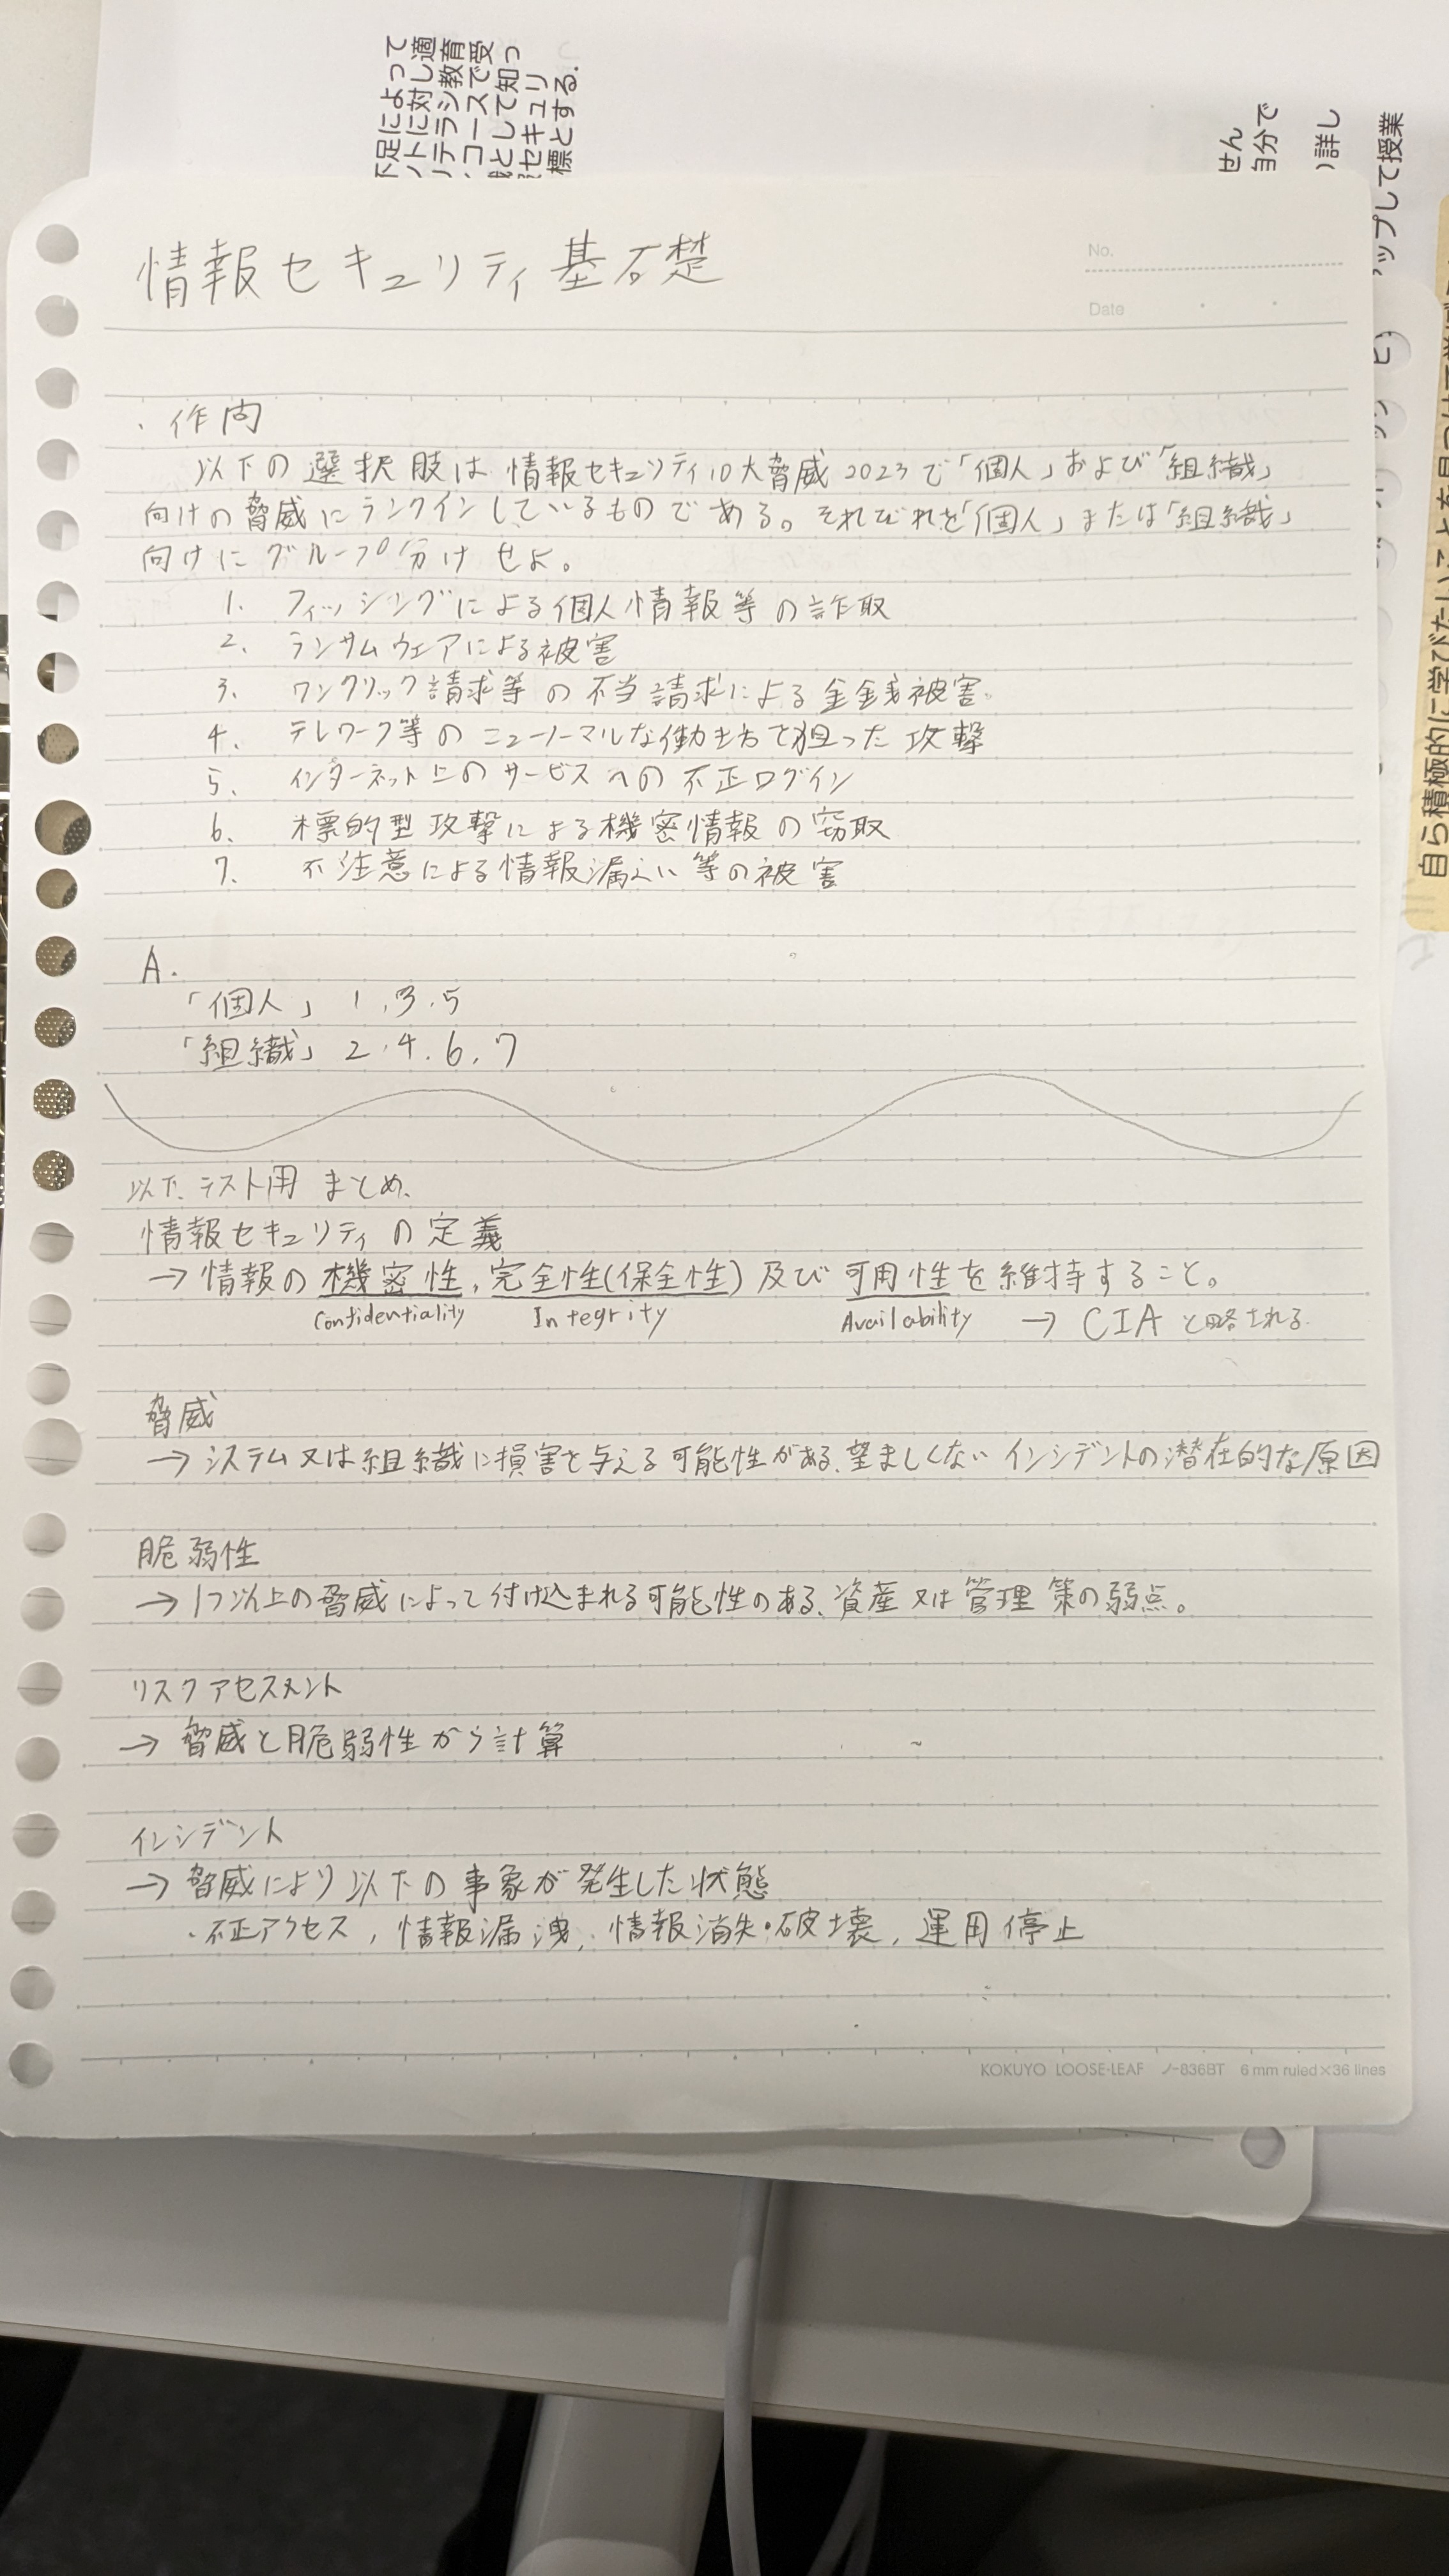 下足によって
ントに対し適
リテラシ教育
コースで受
として知っ
セキュリ
標とする.
せん
自分で
)詳し
ップして授業
自ら積極的に学びたいことを見つけて
情報セキュリティ基礎
No.
Date
・作問
以下の選択肢は情報セキュリティ10大脅威2023で「個人」および「組織」
向けの脅威にランクインしているものである。それぞれを「個人」または「組織」
向けにグループ分けせよ。
1. フィッシングによる個人情報等の詐取
2. ランサムウェアによる被害
3. ワンクリック請求等の不当請求による金銭被害
4. テレワーク等のニューノーマルな働き方を狙った攻撃
5. インターネット上のサービスへの不正ログイン
6. 標的型攻撃による機密情報の窃取
7. 不注意による情報漏えい等の被害
A.
「個人」 1.3.5
「組織」 2.4.6.7
以下、テスト用 まとめ、
情報セキュリティの定義
→情報の機密性,完全性(保全性)及び可用性を維持すること。
Confidentiality Integrity Availability → CIAと略される
脅威
→システム又は組織に損害を与える可能性がある、望ましくないインシデントの潜在的な原因
脆弱性
→1つ以上の脅威によって付け込まれる可能性のある、資産又は管理策の弱点。
リスクアセスメント
→脅威と脆弱性から計算
インシデント
→脅威により以下の事象が発生した状態
・不正アクセス,情報漏洩,情報消失・破壊,運用停止
KOKUYO LOOSE-LEAF ノ-836BT 6 mm ruled×36 lines